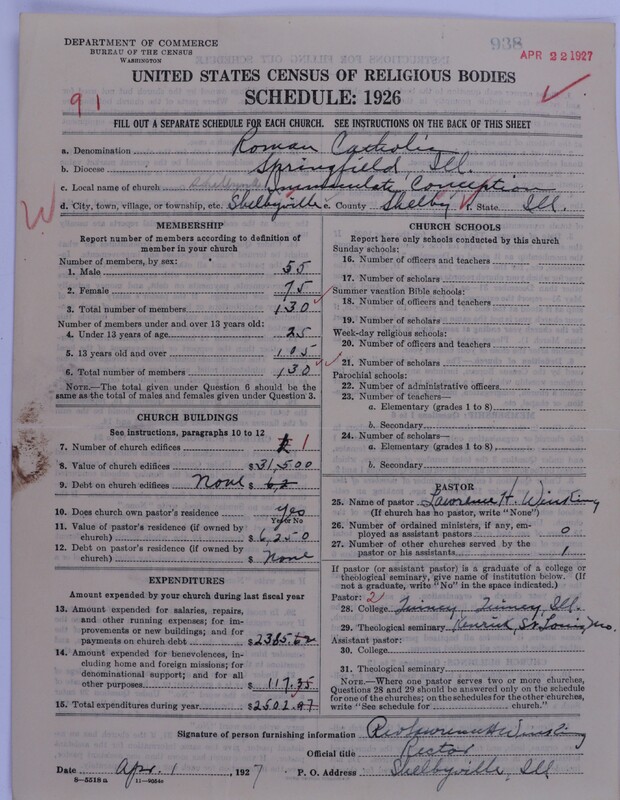 938
APR 22 1927
DEPARTMENT OF COMMERCE
BUREAU OF THE CENSUS
WASHINGTON
UNITED STATES CENSUS OF RELIGIOUS BODIES
SCHEDULE: 1926
91
FILL OUT A SEPARATE SCHEDULE FOR EACH CHURCH. SEE INSTRUCTIONS ON THE BACK OF THIS SHEET
a. Denomination Roman Catholic
b. Diocese Springfield, Ill.
c. Local name of church Immaculate Conception
d. City, town, village, or township, etc. Shelbyville e. County Shelby f. State Ill.
MEMBERSHIP
Report number of members according to definition of member in your church
Number of members, by sex:
1. Male 55
2. Female 75
3. Total number of members 130
Number of members under and over 13 years old:
4. Under 13 years of age 25
5. 13 years old and over 105
6. Total number of members 130
NOTE.—The total given under Question 6 should be the same as the total of males and females given under Question 3.
CHURCH BUILDINGS
See instructions, paragraphs 10 to 12
7. Number of church edifices 1
8. Value of church edifices $31,500
9. Debt on church edifices None $
10. Does church own pastor's residence yes
Yes or No
11. Value of pastor's residence (if owned by church) $6,250
12. Debt on pastor's residence (if owned by church) $ None
EXPENDITURES
Amount expended by your church during last fiscal year
13. Amount expended for salaries, repairs, and other running expenses; for improvements or new buildings; and for payments on church debt $2385.62
14. Amount expended for benevolences, including home and foreign missions; for denominational support; and for all other purposes $117.35
15. Total expenditures during year $2502.97
CHURCH SCHOOLS
Report here only schools conducted by this church
Sunday schools:
16. Number of officers and teachers
17. Number of scholars
Summer vacation Bible schools:
18. Number of officers and teachers
19. Number of scholars
Week-day religious schools:
20. Number of officers and teachers
21. Number of scholars
Parochial schools:
22. Number of administrative officers
23. Number of teachers—
a. Elementary (grades 1 to 8)
b. Secondary
24. Number of scholars—
a. Elementary (grades 1 to 8)
b. Secondary
PASTOR
25. Name of pastor Lawrence H. Winking
(If church has no pastor, write "None")
26. Number of ordained ministers, if any, employed as assistant pastors 0
27. Number of other churches served by the pastor or his assistants 1
If pastor (or assistant pastor) is a graduate of a college or theological seminary, give name of institution below. (If not a graduate, write "No" in the space indicated.)
Pastor: 2
28. College Quincy Quincy Ill.
29. Theological seminary Kenrick, St. Louis, Mo.
Assistant pastor:
30. College
31. Theological seminary
NOTE.—Where one pastor serves two or more churches, Questions 28 and 29 should be answered only on the schedule for one of the churches; on the schedules for the other churches, write "See schedule for church."
Signature of person furnishing information Rev Lawrence H Winking
Official title Rector
Date Apr. 1 1927 P. O. Address Shelbyville, Ill
8—5518 a 11—9054a